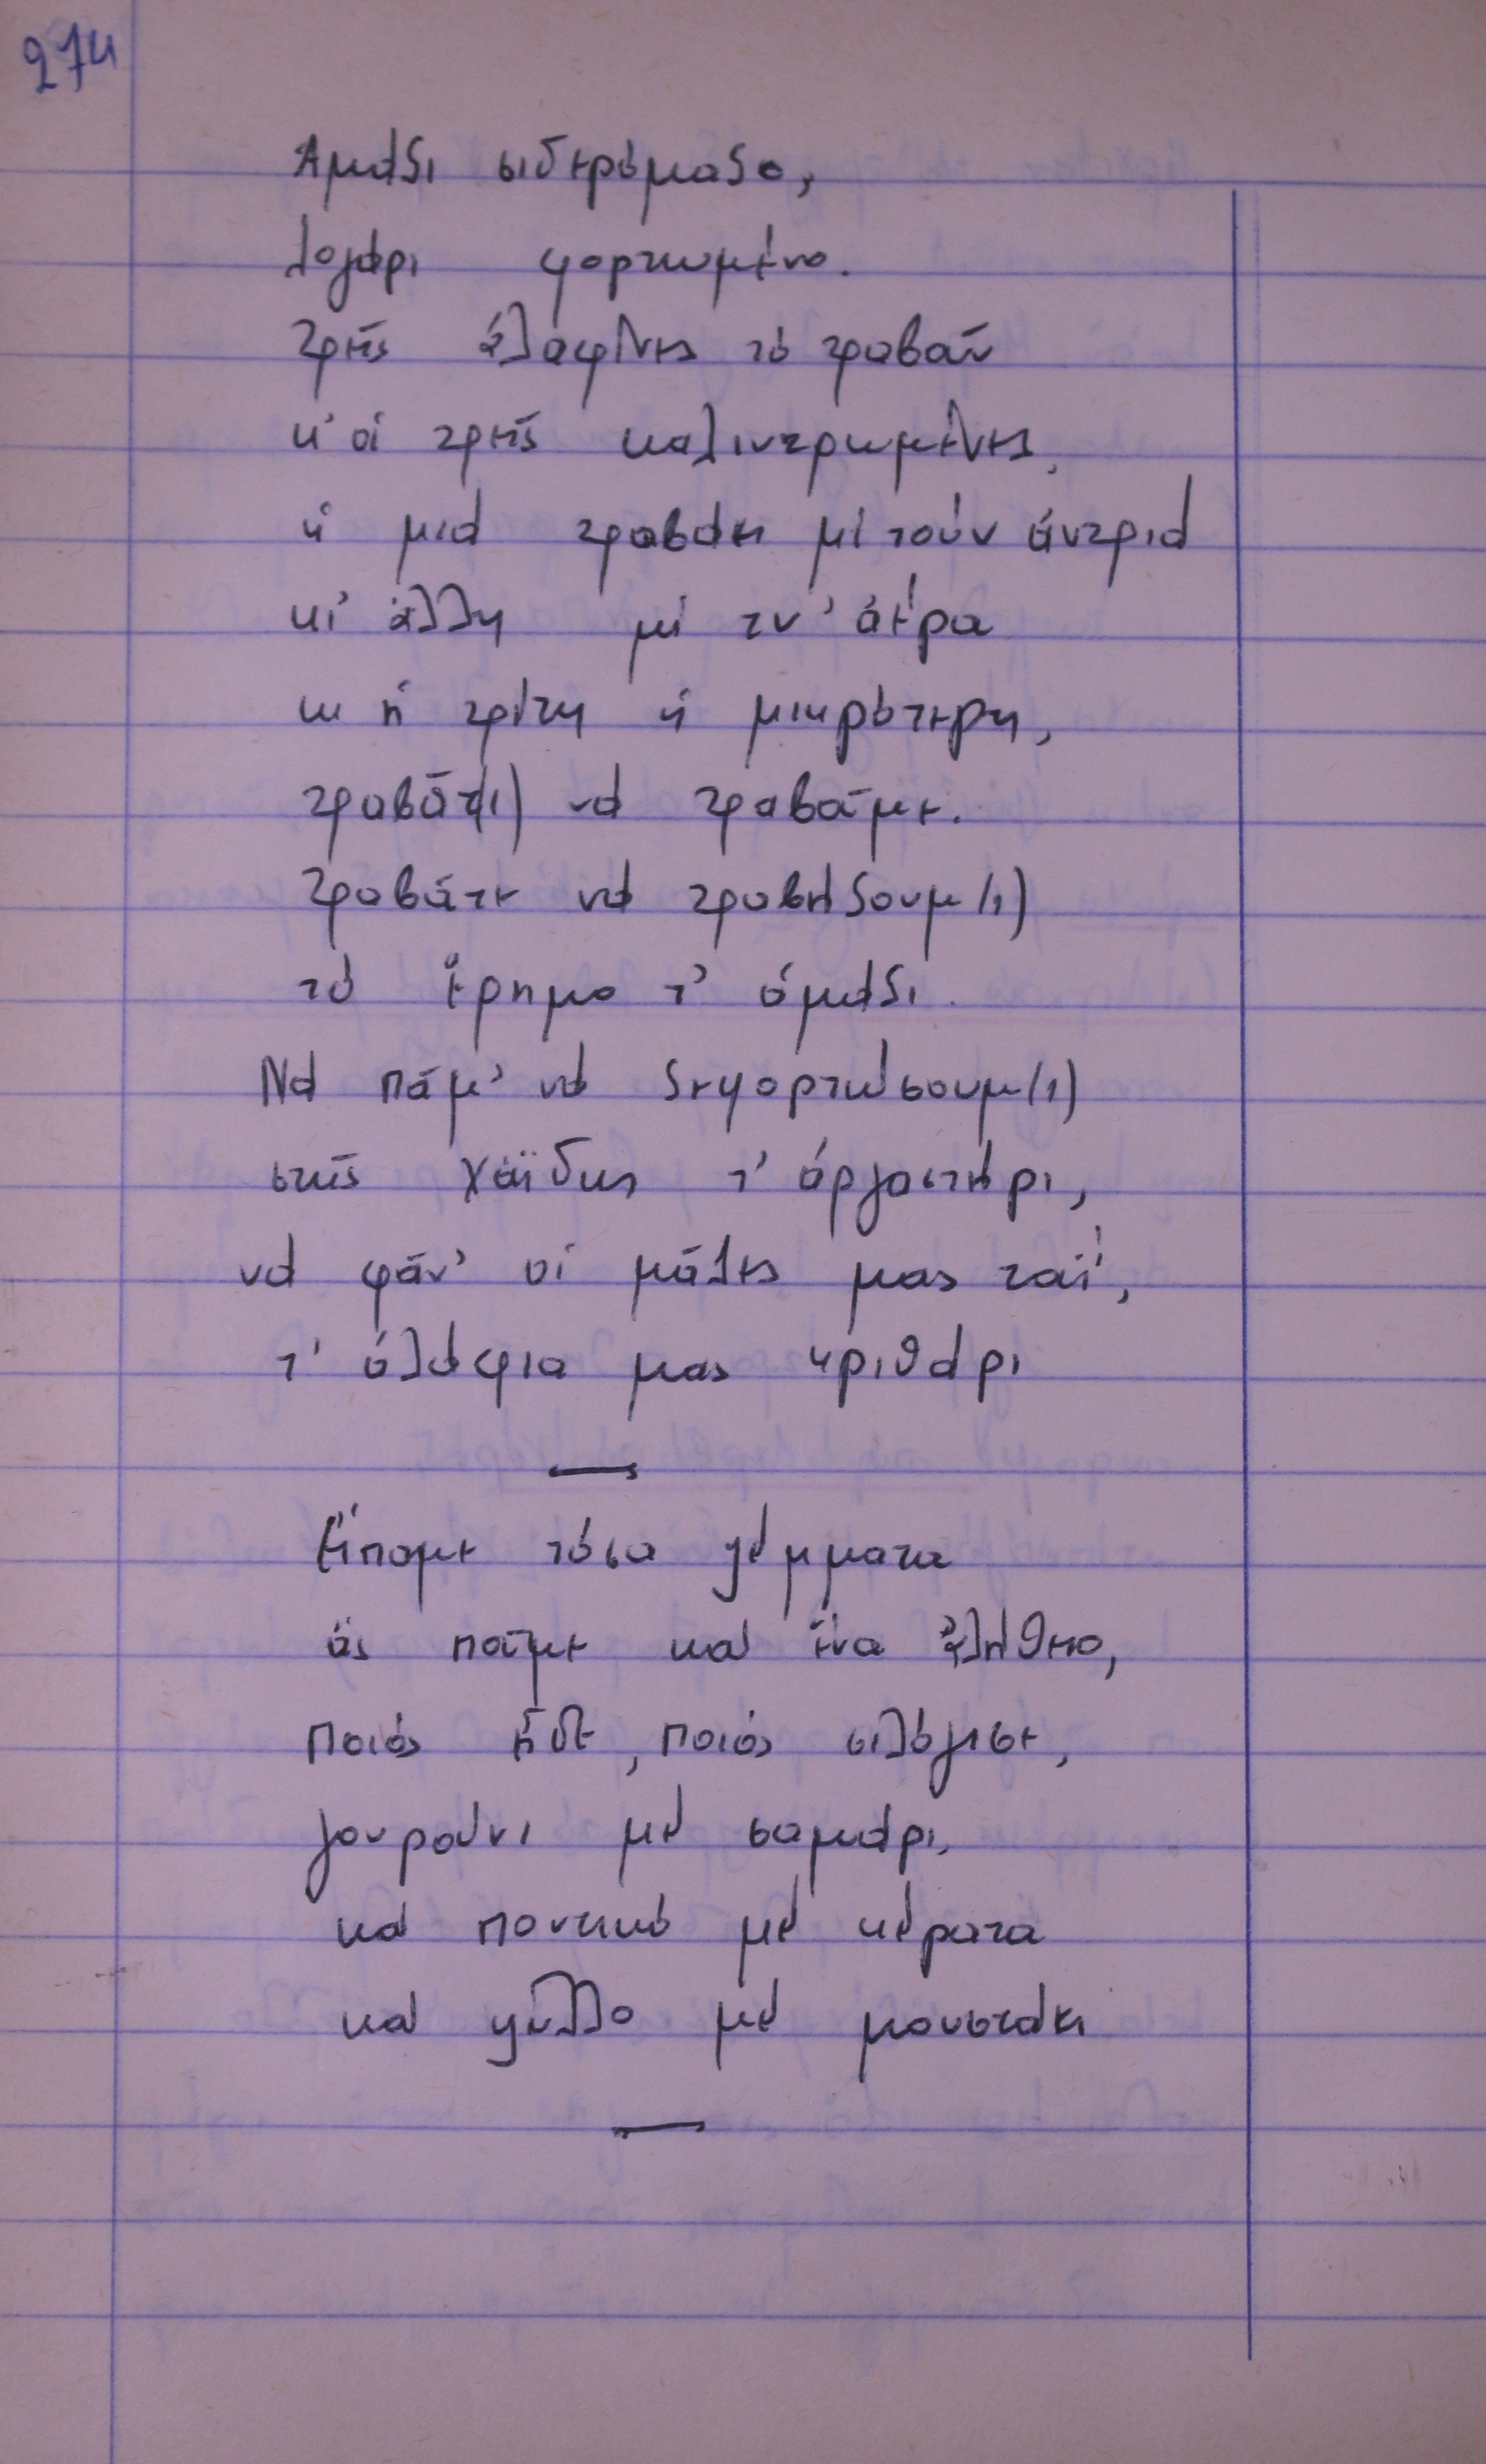 274
Ἀμάξι σιδερόμαξο,
λογάρι φορτωμένο.
Τρεῖς ἐλαφίνες τό τραβᾶν
κ' οἱ τρεῖς καλιντρωμένες,
ἡ μιά τραβάει μέ τούν ἀντριά
κι' ἄλλη μέ τν' ἀέρα
κι ἡ τρίτη ἡ μικρότερη,
τραβᾶτ(ι) νά τραβᾶμε.
Τραβᾶτε νά τραβήξουμ(ι)
τό ἔρημο τ' ἀμάξι.
Νά πᾶμ' νά ξεφορτώσουμ(ι)
στῆς Χάϊδως τ' ἀργαστήρι,
νά φᾶν' οἱ μοῦλες μας ταΐ,
τ' ἀλόφια μας κριθάρι
Εἴπαμε τόσα ψέμματα
ἄς ποῦμε καί ἕνα ἀλήθεια,
ποιός εἶδε, ποιός σιλόγισε,
γουρούνι μέ σαμάρι,
καί ποντικό μέ κέρατα
καί ψύλλο μέ μουστάκι